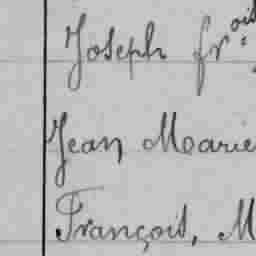 Joseph fr.ois
Jean Marie
François, M